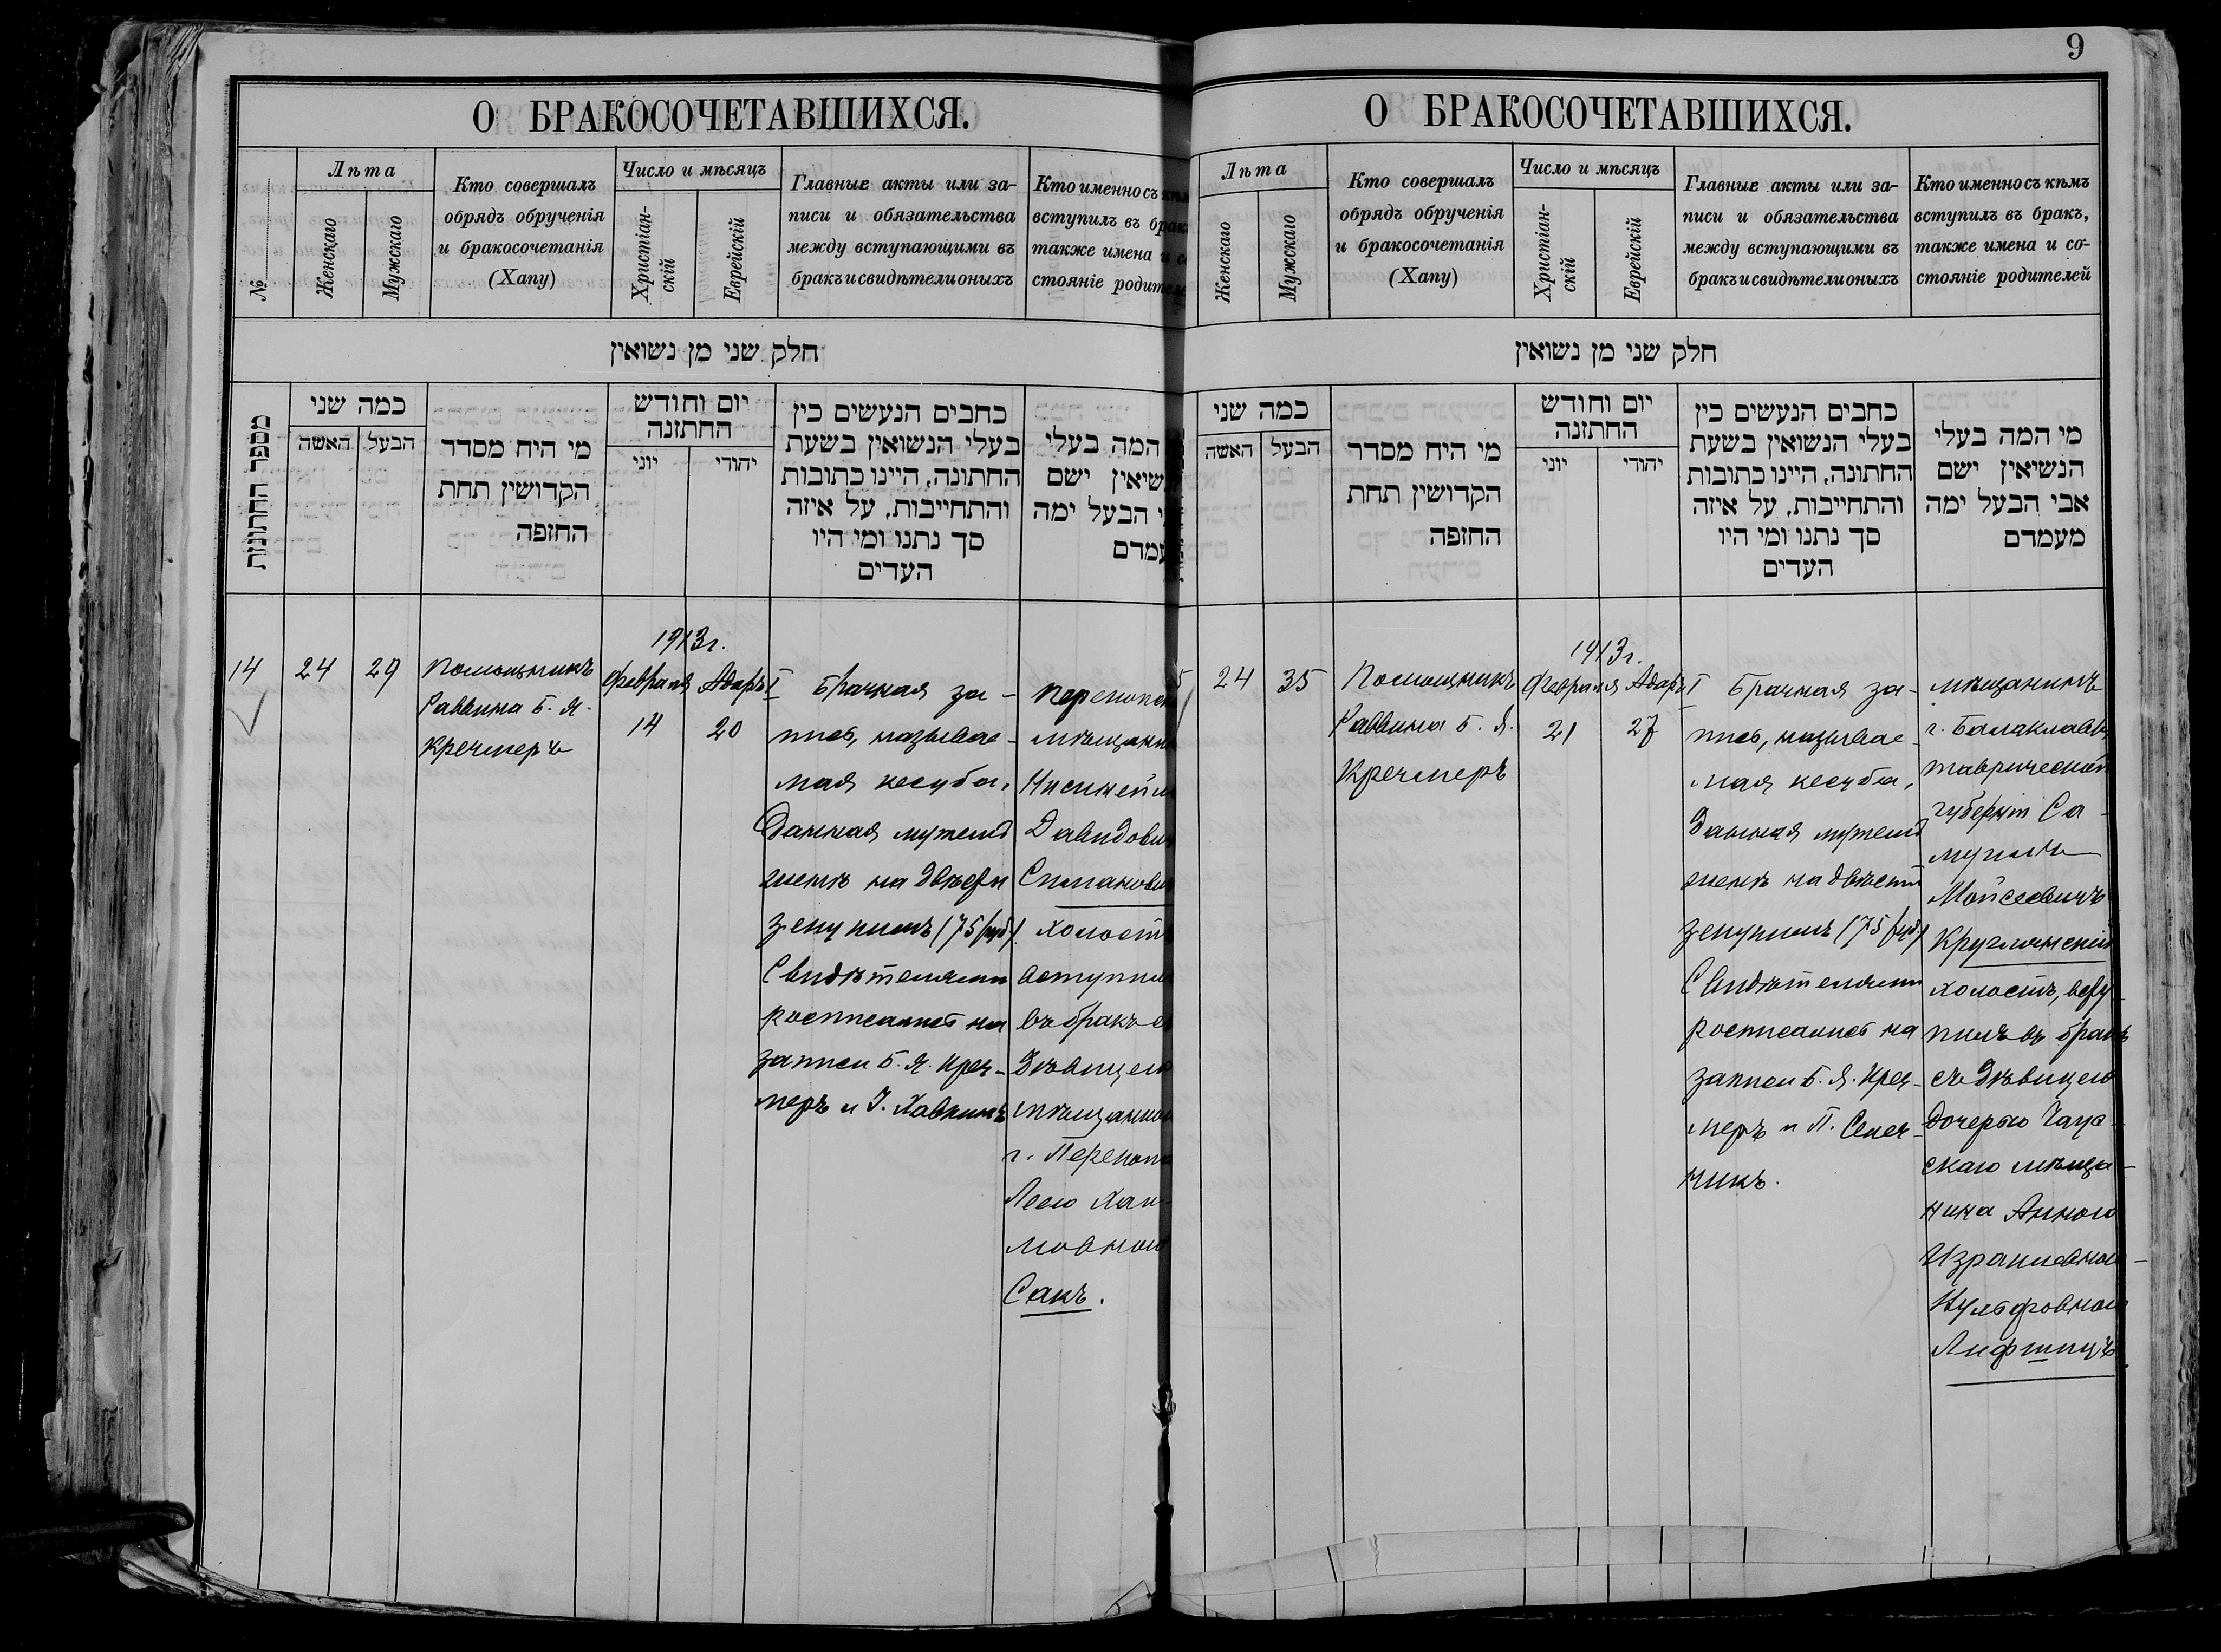 9
О БРАКОСОЧЕТАВШИХСЯ.
№
Лѣта
Женскаго
Мужскаго
Кто совершалъ
обрядъ обрученія
и бракосочетанія
(Хапу)
Число и мѣсяцъ
Христіан-
скій
Еврейскій
Главные акты или за-
писи и обязательства
между вступающими въ
бракъ и свидѣтели оныхъ
Кто именно съ
вступилъ въ брак
также имена и
стояніе родител
חלק שני מן נשואין
מספר החתונות
כמה שני
האשה
הבעל
מי היח מסדר
הקדושין תחת
החזפה
יום וחודש
החתזנה
יוני
יהודי
כחבים הנעשים כין
בעלי הנשואין בשעת
החתונה, היינו כתובות
והתחייבות, על איזה
סך נתנו ומי היו
העדים
המה בעלי
שיאין ישם
הבעל ימה
עמדם
14
24
29
Помощникъ
Раввина Б. Я.
Кречмеръ
1913 г.
Февраля
14
Адаръ I
20
Брачная за-
пись, называе-
мая кесуба,
данная мужемъ
женѣ на двѣсти
зепунимъ (75 руб.)
Свидѣтелями
росписались на
записи Б. Я. Креч-
меръ и І. Хавкинъ
Перекопск
мѣщанин
Давидович
Симанович
холостъ
вступил
въ бракъ съ
дѣвицею
мѣщанкою
г. Перекопа
Леею Хаи-
мовною
Сакъ.
О БРАКОСОЧЕТАВШИХСЯ.
Лѣта
Женскаго
Мужскаго
Кто совершалъ
обрядъ обрученія
и бракосочетанія
(Хапу)
Число и мѣсяцъ
Христіан-
скій
Еврейскій
Главные акты или за-
писи и обязательства
между вступающими въ
бракъ и свидѣтели оныхъ
Кто именно съ кѣмъ
вступилъ въ бракъ,
также имена и со-
стояніе родителей
חלק שני מן נשואין
כמה שני
האשה
הבעל
מי היח מסדר
הקדושין תחת
החזפה
יום וחודש
החתזנה
יוני
יהודי
כחבים הנעשים כין
בעלי הנשואין בשעת
החתונה, היינו כתובות
והתחייבות, על איזה
סך נתנו ומי היו
העדים
מי המה בעלי
הנשיאין ישם
אבי הבעל ימה
מעמדם
5
24
35
Помощникъ
Раввина Б. Я.
Кречмеръ
1913 г.
Февраля
21
Адаръ I
27
Брачная за-
пись, называе-
мая кесуба,
данная мужемъ
женѣ на двѣсти
зепунимъ (75 руб.)
Свидѣтелями
росписались на
записи Б. Я. Креч-
меръ и П. Селеч-
никъ.
мѣщанинъ
г. Балаклавы
Таврической
губерніи Са-
муилъ
Мойсеевичъ
Круглянскій
холостъ, всту-
пилъ въ бракъ
съ дѣвицею
дочерью Чаус-
скаго мѣща-
нина Анною
Израилевною-
Нульфовною
Лифшицъ